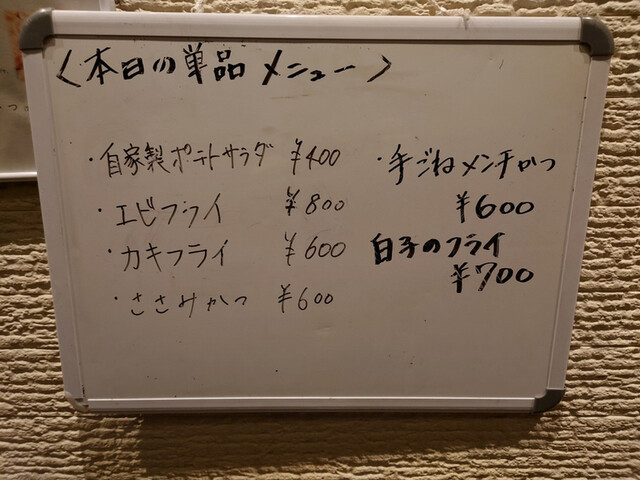 〈本日の単品メニュー〉
・自家製ポテトサラダ ¥400
・エビフライ ¥800
・カキフライ ¥600
・ささみかつ ¥600
・手ごねメンチかつ
¥600
白子のフライ
¥700